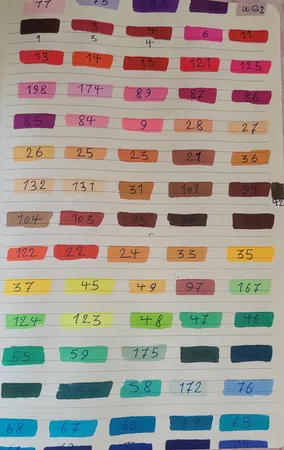 77 75 WG2
1 3 4 6 11
3 4
13 14 15 121 125
198 174 89 87 86
85 84 9 28 27
26 25 23 21 36
132 131 31 101 94
104 103 95
122 22 24 33 35
37 45 49 97 167
124 123 48 47 46
55 59 175
54 58 172 76
68 67 66 61 65